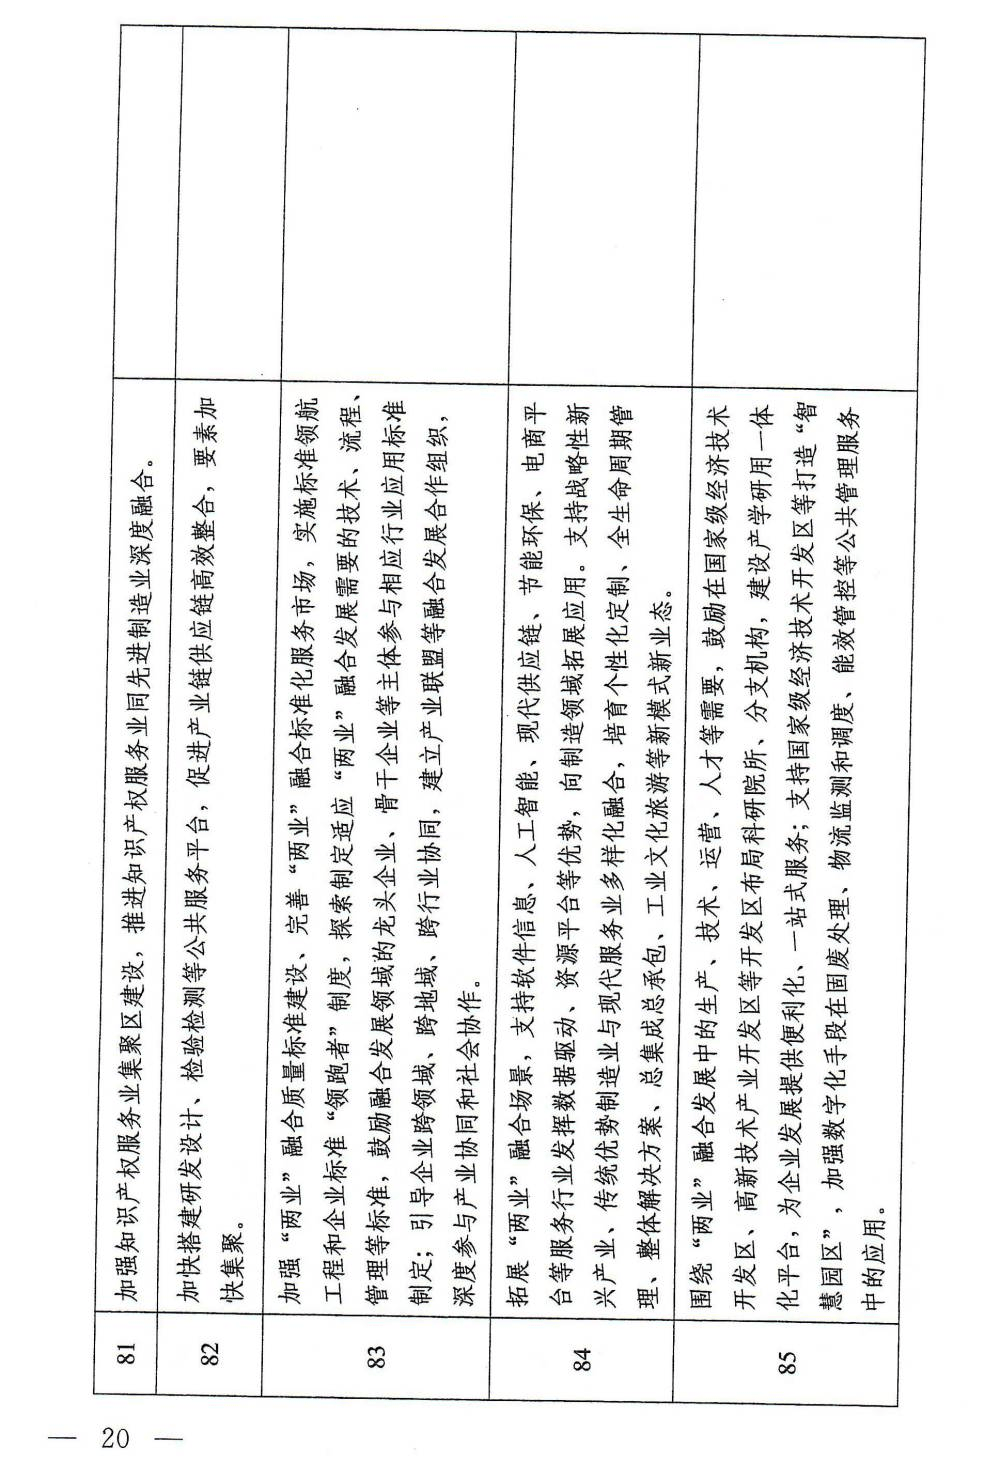 81
加强知识产权服务业集聚区建设，推进知识产权服务业同先进制造业深度融合。
82
加快搭建研发设计、检验检测等公共服务平台，促进产业链供应链高效整合，要素加
快集聚。
83
加强“两业”融合质量标准建设、完善“两业”融合标准化服务市场，实施标准领航
工程和企业标准“领跑者”制度，探索制定适应“两业”融合发展需要的技术、流程、
管理等标准，鼓励融合发展领域的龙头企业、骨干企业等主体参与相应行业应用标准
制定；引导企业跨领域、跨地域、跨行业协同，建立产业联盟等融合发展合作组织，
深度参与产业协同和社会协作。
84
拓展“两业”融合场景，支持软件信息、人工智能、现代供应链、节能环保、电商平
台等服务行业发挥数据驱动、资源平台等优势，向制造领域拓展应用。支持战略性新
兴产业、传统优势制造业与现代服务业多样化融合，培育个性化定制、全生命周期管
理、整体解决方案、总集成总承包、工业文化旅游等新模式新业态。
85
围绕“两业”融合发展中的生产、技术、运营、人才等需要，鼓励在国家级经济技术
开发区、高新技术产业开发区等开发区布局科研院所、分支机构，建设产学研用一体
化平台，为企业发展提供便利化、一站式服务；支持国家级经济技术开发区等打造“智
慧园区”，加强数字化手段在固废处理、物流监测和调度、能效管控等公共管理服务
中的应用。
— 20 —